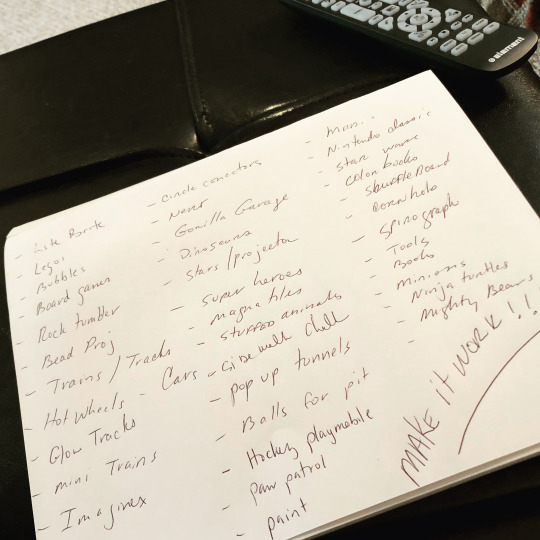 - Lite Brite
- Legos
- Bubbles
- Board games
- Rock tumbler
- Bead Proj
- Trains / Tracks
- Hot Wheels - Cars
- Glow Tracks
- mini Trains
- Imaginex
- Circle conectors
- Nerf
- Gorilla Garage
- Dinosaurs
- Stars/projector
- Super heroes
- magna tiles
- Stuffed animals
- Side walk Chalk
- POP up tunnels
- Balls for pit
- Hockey playmobile
- Paw patrol
- paint
- Nintendo classic
- Star wars
- Color books
- Shuffle Board
- Cornhole
- Spirograph
- Tools
- Books
- minions
- Ninja turtles
- Mighty Beans
MAKE IT WORK!!
element